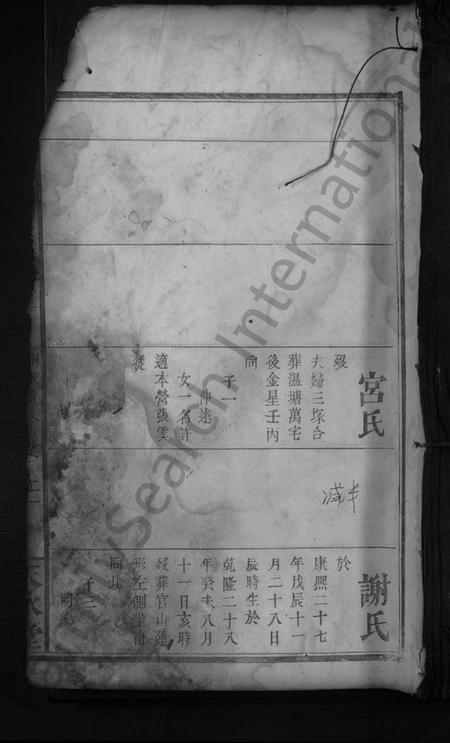 宮氏
歿
夫婦三塚合
葬溫塘萬宅
後金星壬丙
向
子一
仲達
女一名計
適本營張雲
從
減半
謝氏
於
康熙二十七
年戊辰十一
月二十八日
辰時生於
乾隆二十八
年癸未八月
十一日亥時
歿葬官山蓮
形左側坐南
向北
子三
明
FamilySearch International